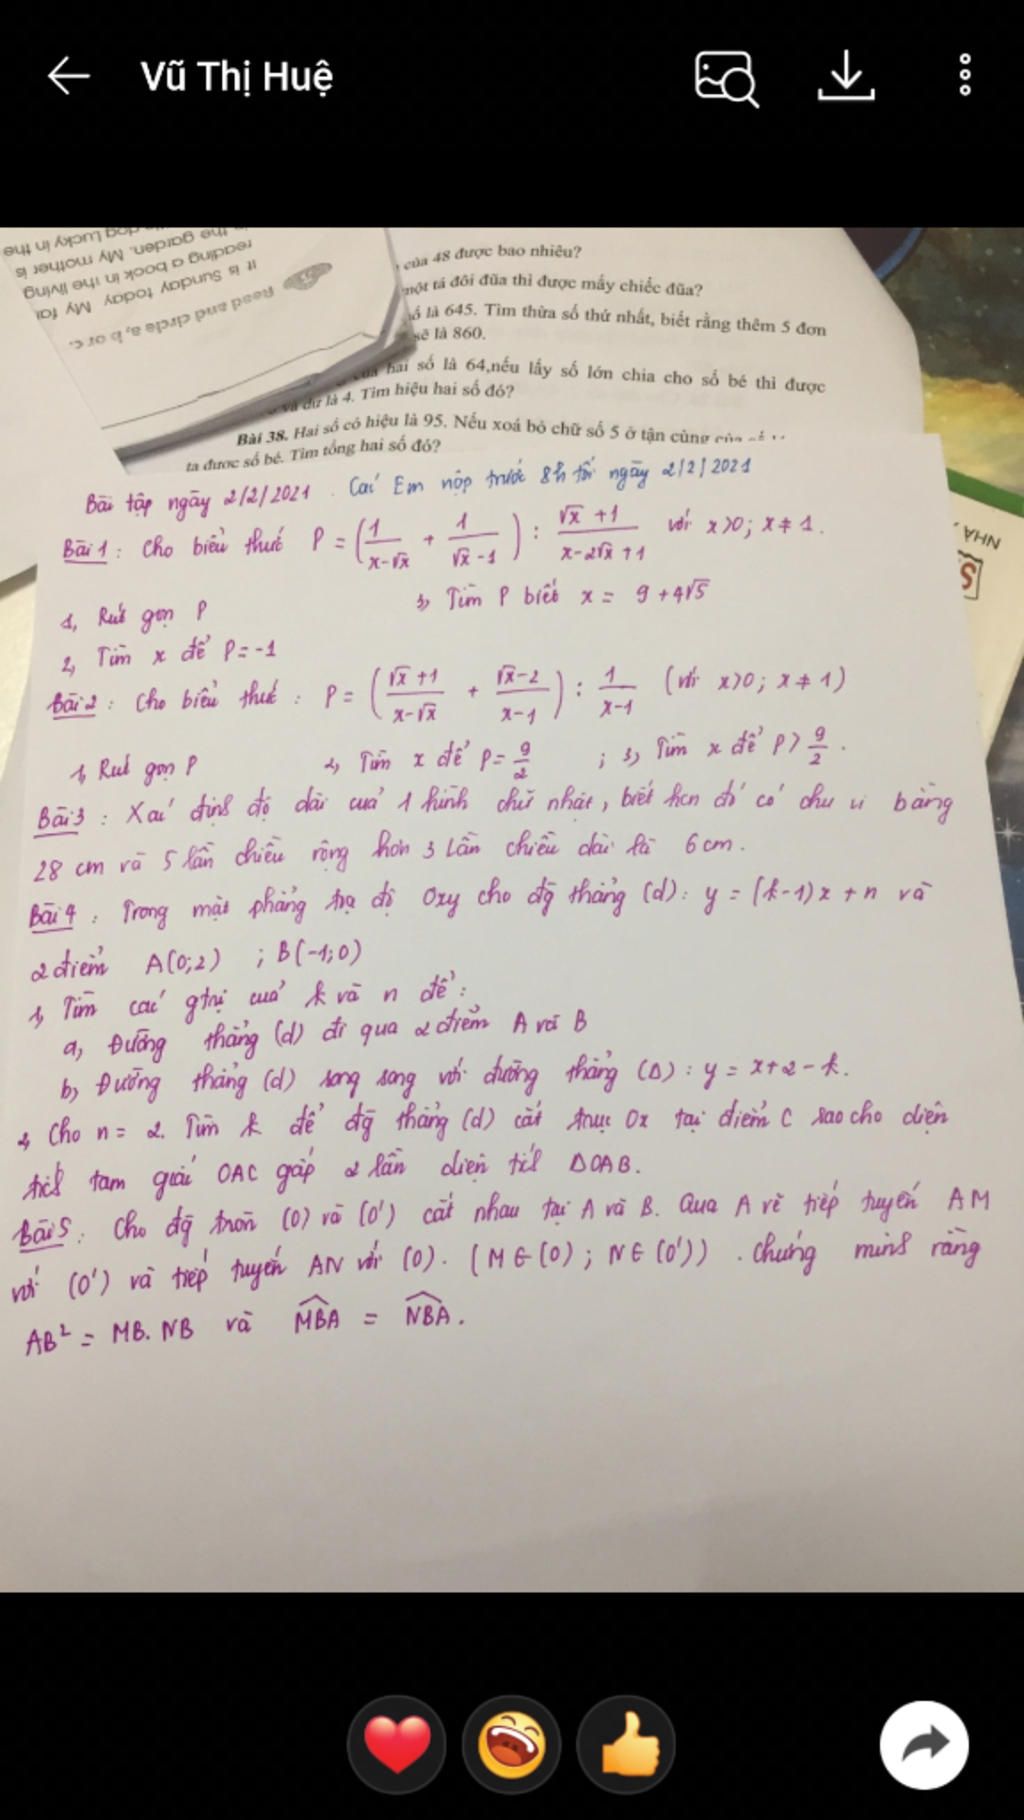 Vũ Thị Huệ
dog Lucky in the
the garden. My mother is
reading a book in the living
It is Sunday today. My fat
Read and circle a, b or c.
của 48 được bao nhiêu?
một tá đôi đũa thì được mấy chiếc đũa?
là 645. Tìm thừa số thứ nhất, biết rằng thêm 5 đơn
sẽ là 860.
hai số là 64,nếu lấy số lớn chia cho số bé thì được
và dư là 4. Tìm hiệu hai số đó?
Bài 38. Hai số có hiệu là 95. Nếu xoá bỏ chữ số 5 ở tận cùng của
ta được số bé. Tìm tổng hai số đó?
NHA
S
Bài tập ngày 2/2/2021. Các Em nộp trước 8h tối ngày 2/2/2021
Bài 1: Cho biểu thức P = (1/(x-√x) + 1/(√x-1)) : (√x+1)/(x-2√x+1) với x>0; x≠1.
1, Rút gọn P 3, Tìm P biết x = 9+4√5
2, Tìm x để P=-1
Bài 2: Cho biểu thức: P = ((√x+1)/(x-√x) + (√x-2)/(x-1)) : 1/(x-1) (với x>0; x≠1)
1, Rút gọn P 2, Tìm x để P = 9/2 ; 3, Tìm x để P > 9/2.
Bài 3: Xác định độ dài của 1 hình chữ nhật, biết hcn đó có chu vi bằng
28 cm và 5 lần chiều rộng hơn 3 lần chiều dài là 6cm.
Bài 4: Trong mặt phẳng tọa độ Oxy cho đg thẳng (d): y = (k-1)x + n và
2 điểm A(0;2) ; B(-1;0)
1, Tìm các gtrị của k và n để:
a, Đường thẳng (d) đi qua 2 điểm A và B
b, Đường thẳng (d) song song với đường thẳng (Δ): y = x+2-k.
2, Cho n = 2. Tìm k để đg thẳng (d) cắt trục Ox tại điểm C sao cho diện
tích tam giác OAC gấp 2 lần diện tích ΔOAB.
Bài 5: Cho đg tròn (O) và (O') cắt nhau tại A và B. Qua A vẽ tiếp tuyến AM
với (O') và tiếp tuyến AN với (O). (M∈(O); N∈(O')). Chứng minh rằng
AB² = MB.NB và M̂BA = N̂BA.